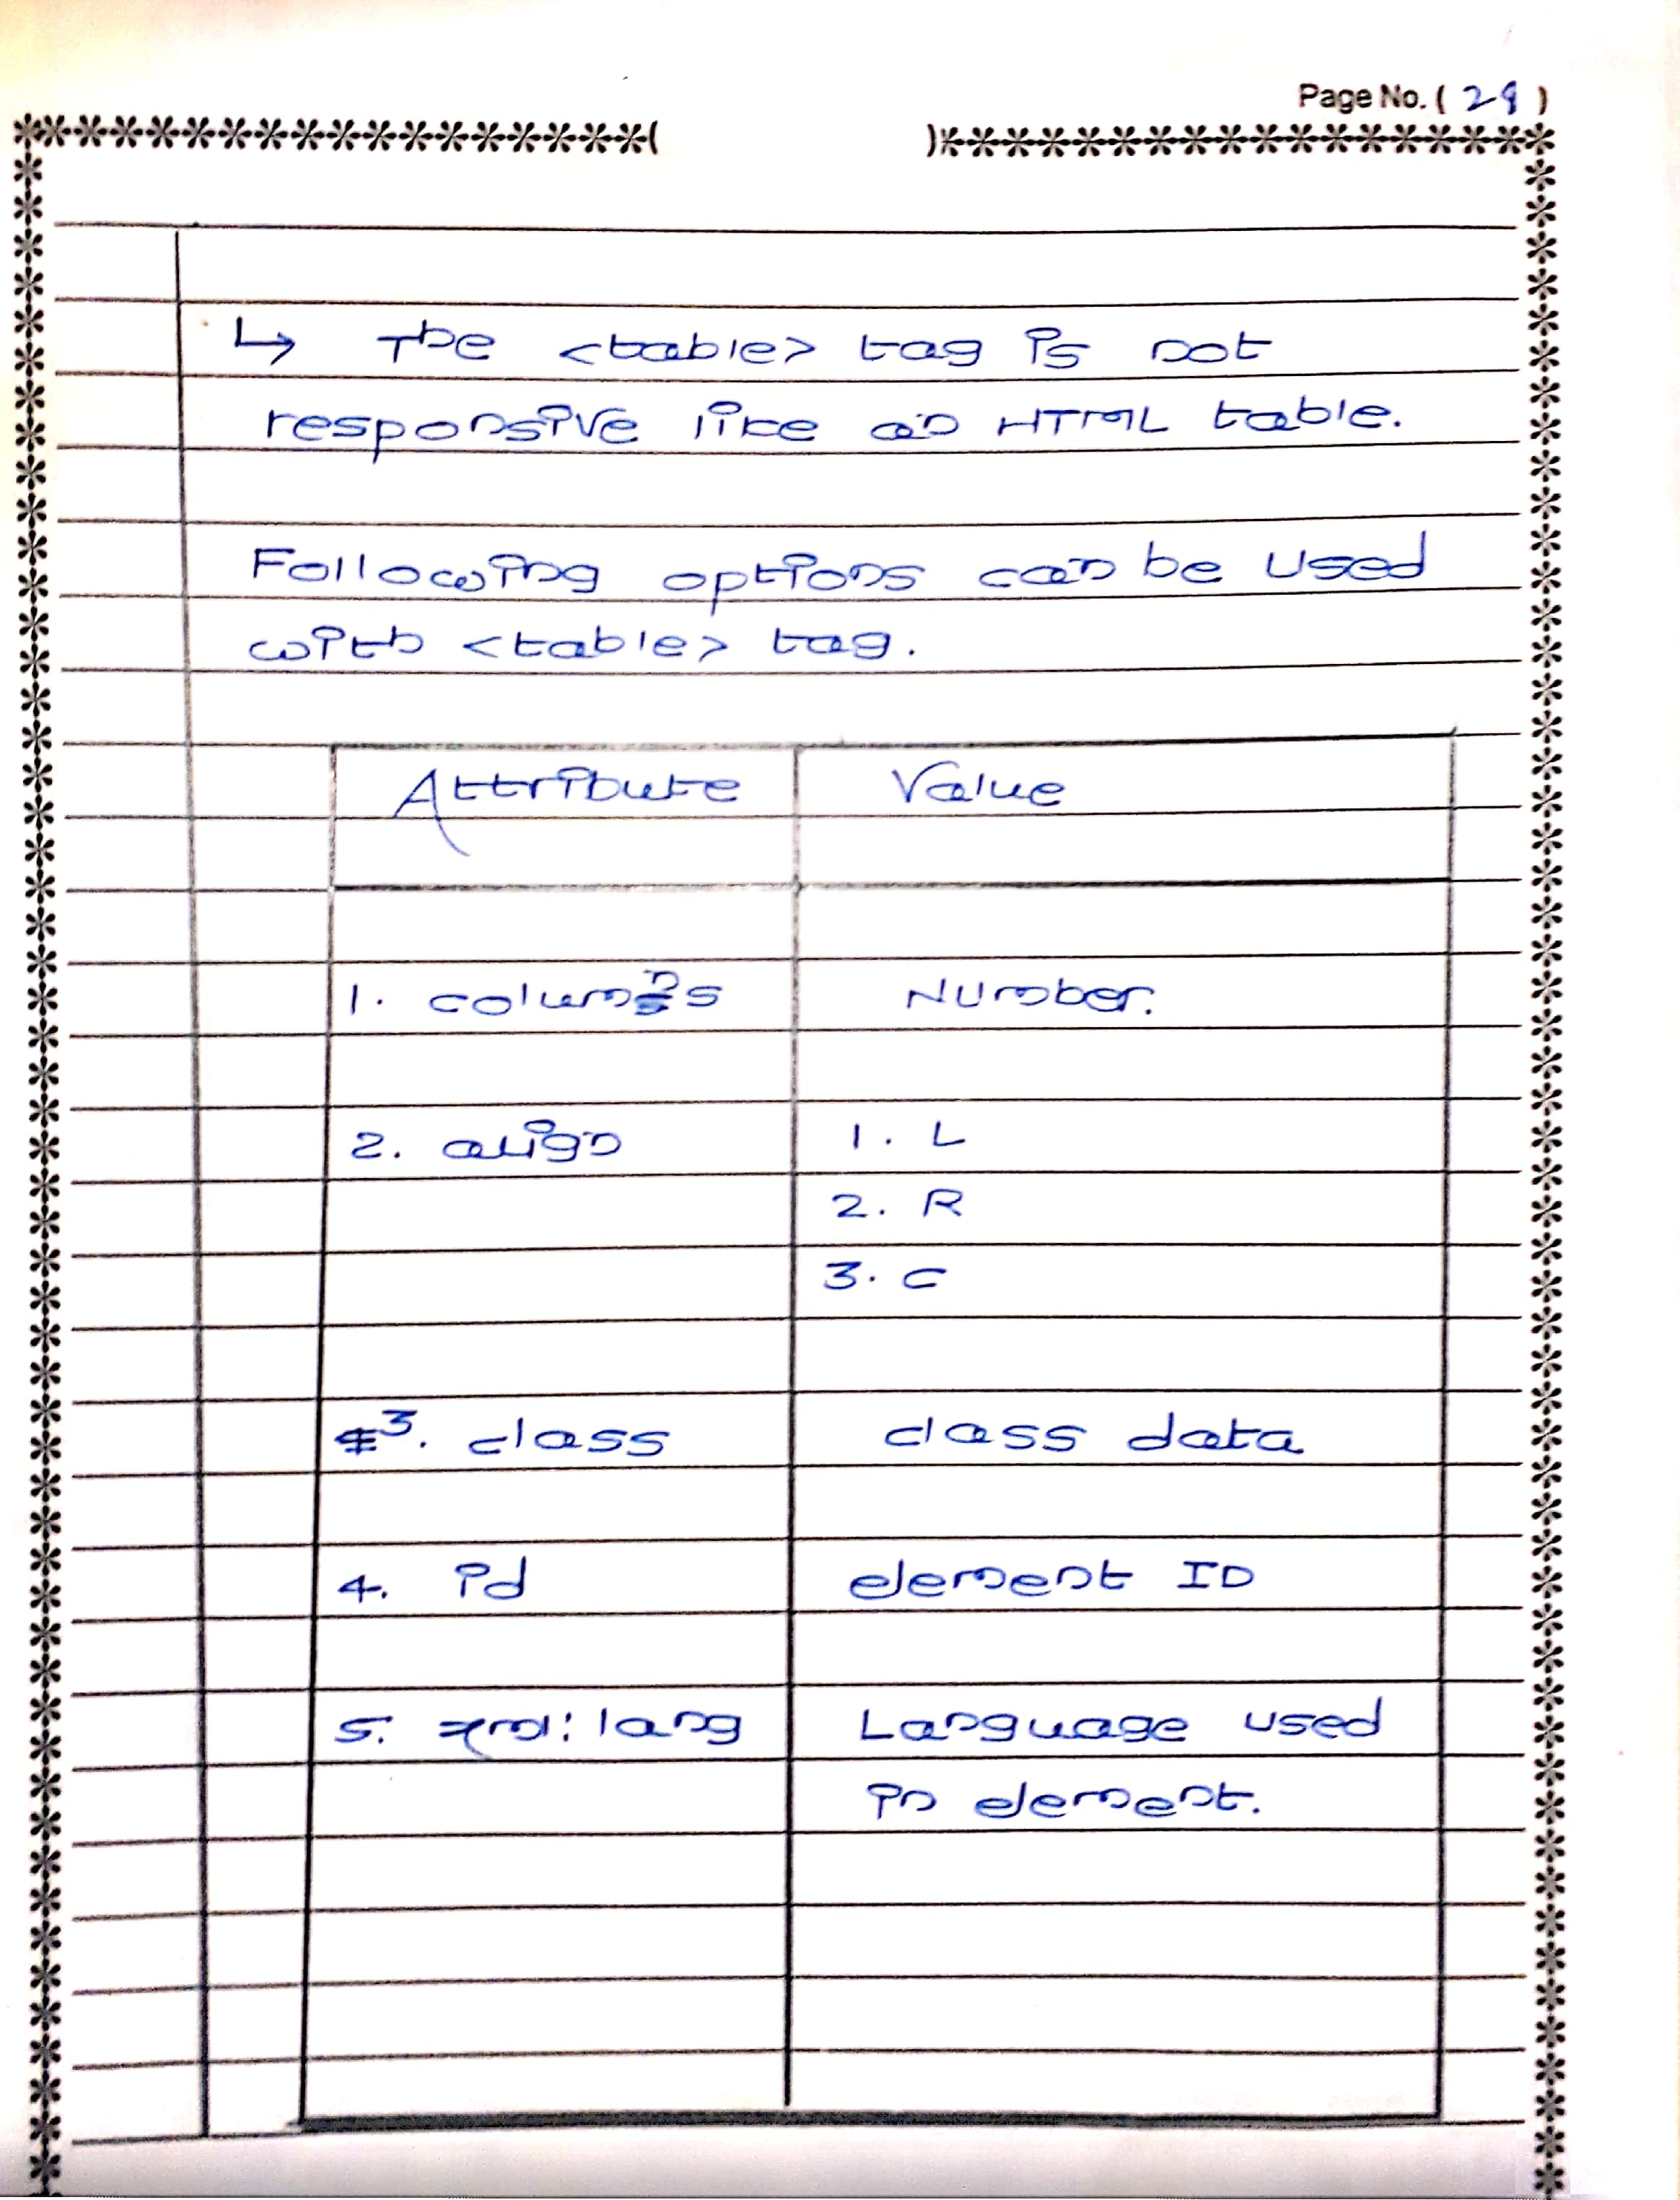 Page No. ( 29 )
↳ The <table> tag is not
responsive like an HTML table.
Following options can be used
with <table> tag.
Attribute Value
1. columns Number.
2. align 1. L
2. R
3. C
3. class class data
4. id element ID
5. xml:lang Language used
in element.